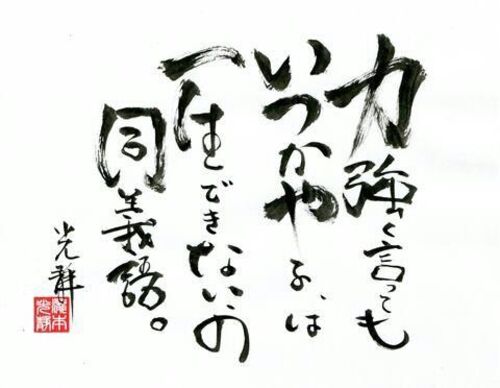 力強く言っても
いつかやる、は
一生できない、の
同義語。
光静